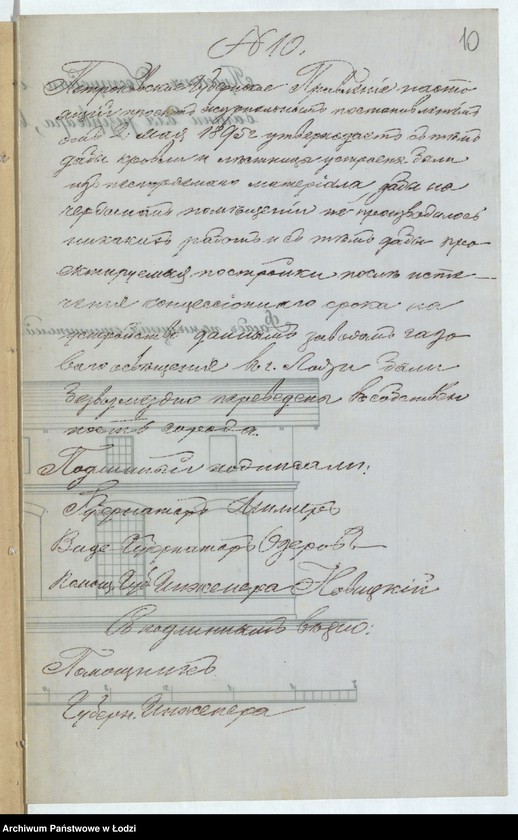 10
№ 10.
Петроковское Губернское Правление насто-
ящий проэктъ журнальнымъ постановленіемъ
2 Мая 1895 г. утверждаетъ съ тѣмъ
дабы кровля и лѣстница устроены были
изъ несгораемаго матеріала, дабы на
чердачномъ помѣщеніи не производилось
никакихъ работъ и съ тѣмъ дабы про-
эктируемыя постройки послѣ исте-
ченія концессіоннаго срока на
устройство заводомъ газо
ваго освѣщенія въ г. Лодзи были
безвозмездно переведены въ собствен
ность города.
Подлинный подписали:
Губернаторъ Миллеръ
Вице Губернаторъ Озеровъ
Помощ. Губ. Инженера Новицкій
Съ подлиннымъ вѣрно:
Помощникъ
Губерн. Инженера
Archiwum Państwowe w Łodzi